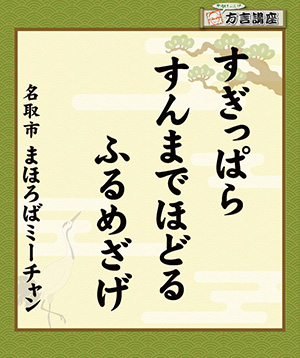 方言講座
すぎっぱら
すんまでほどる
ふるめざげ
名取市 まほろばミーチャン